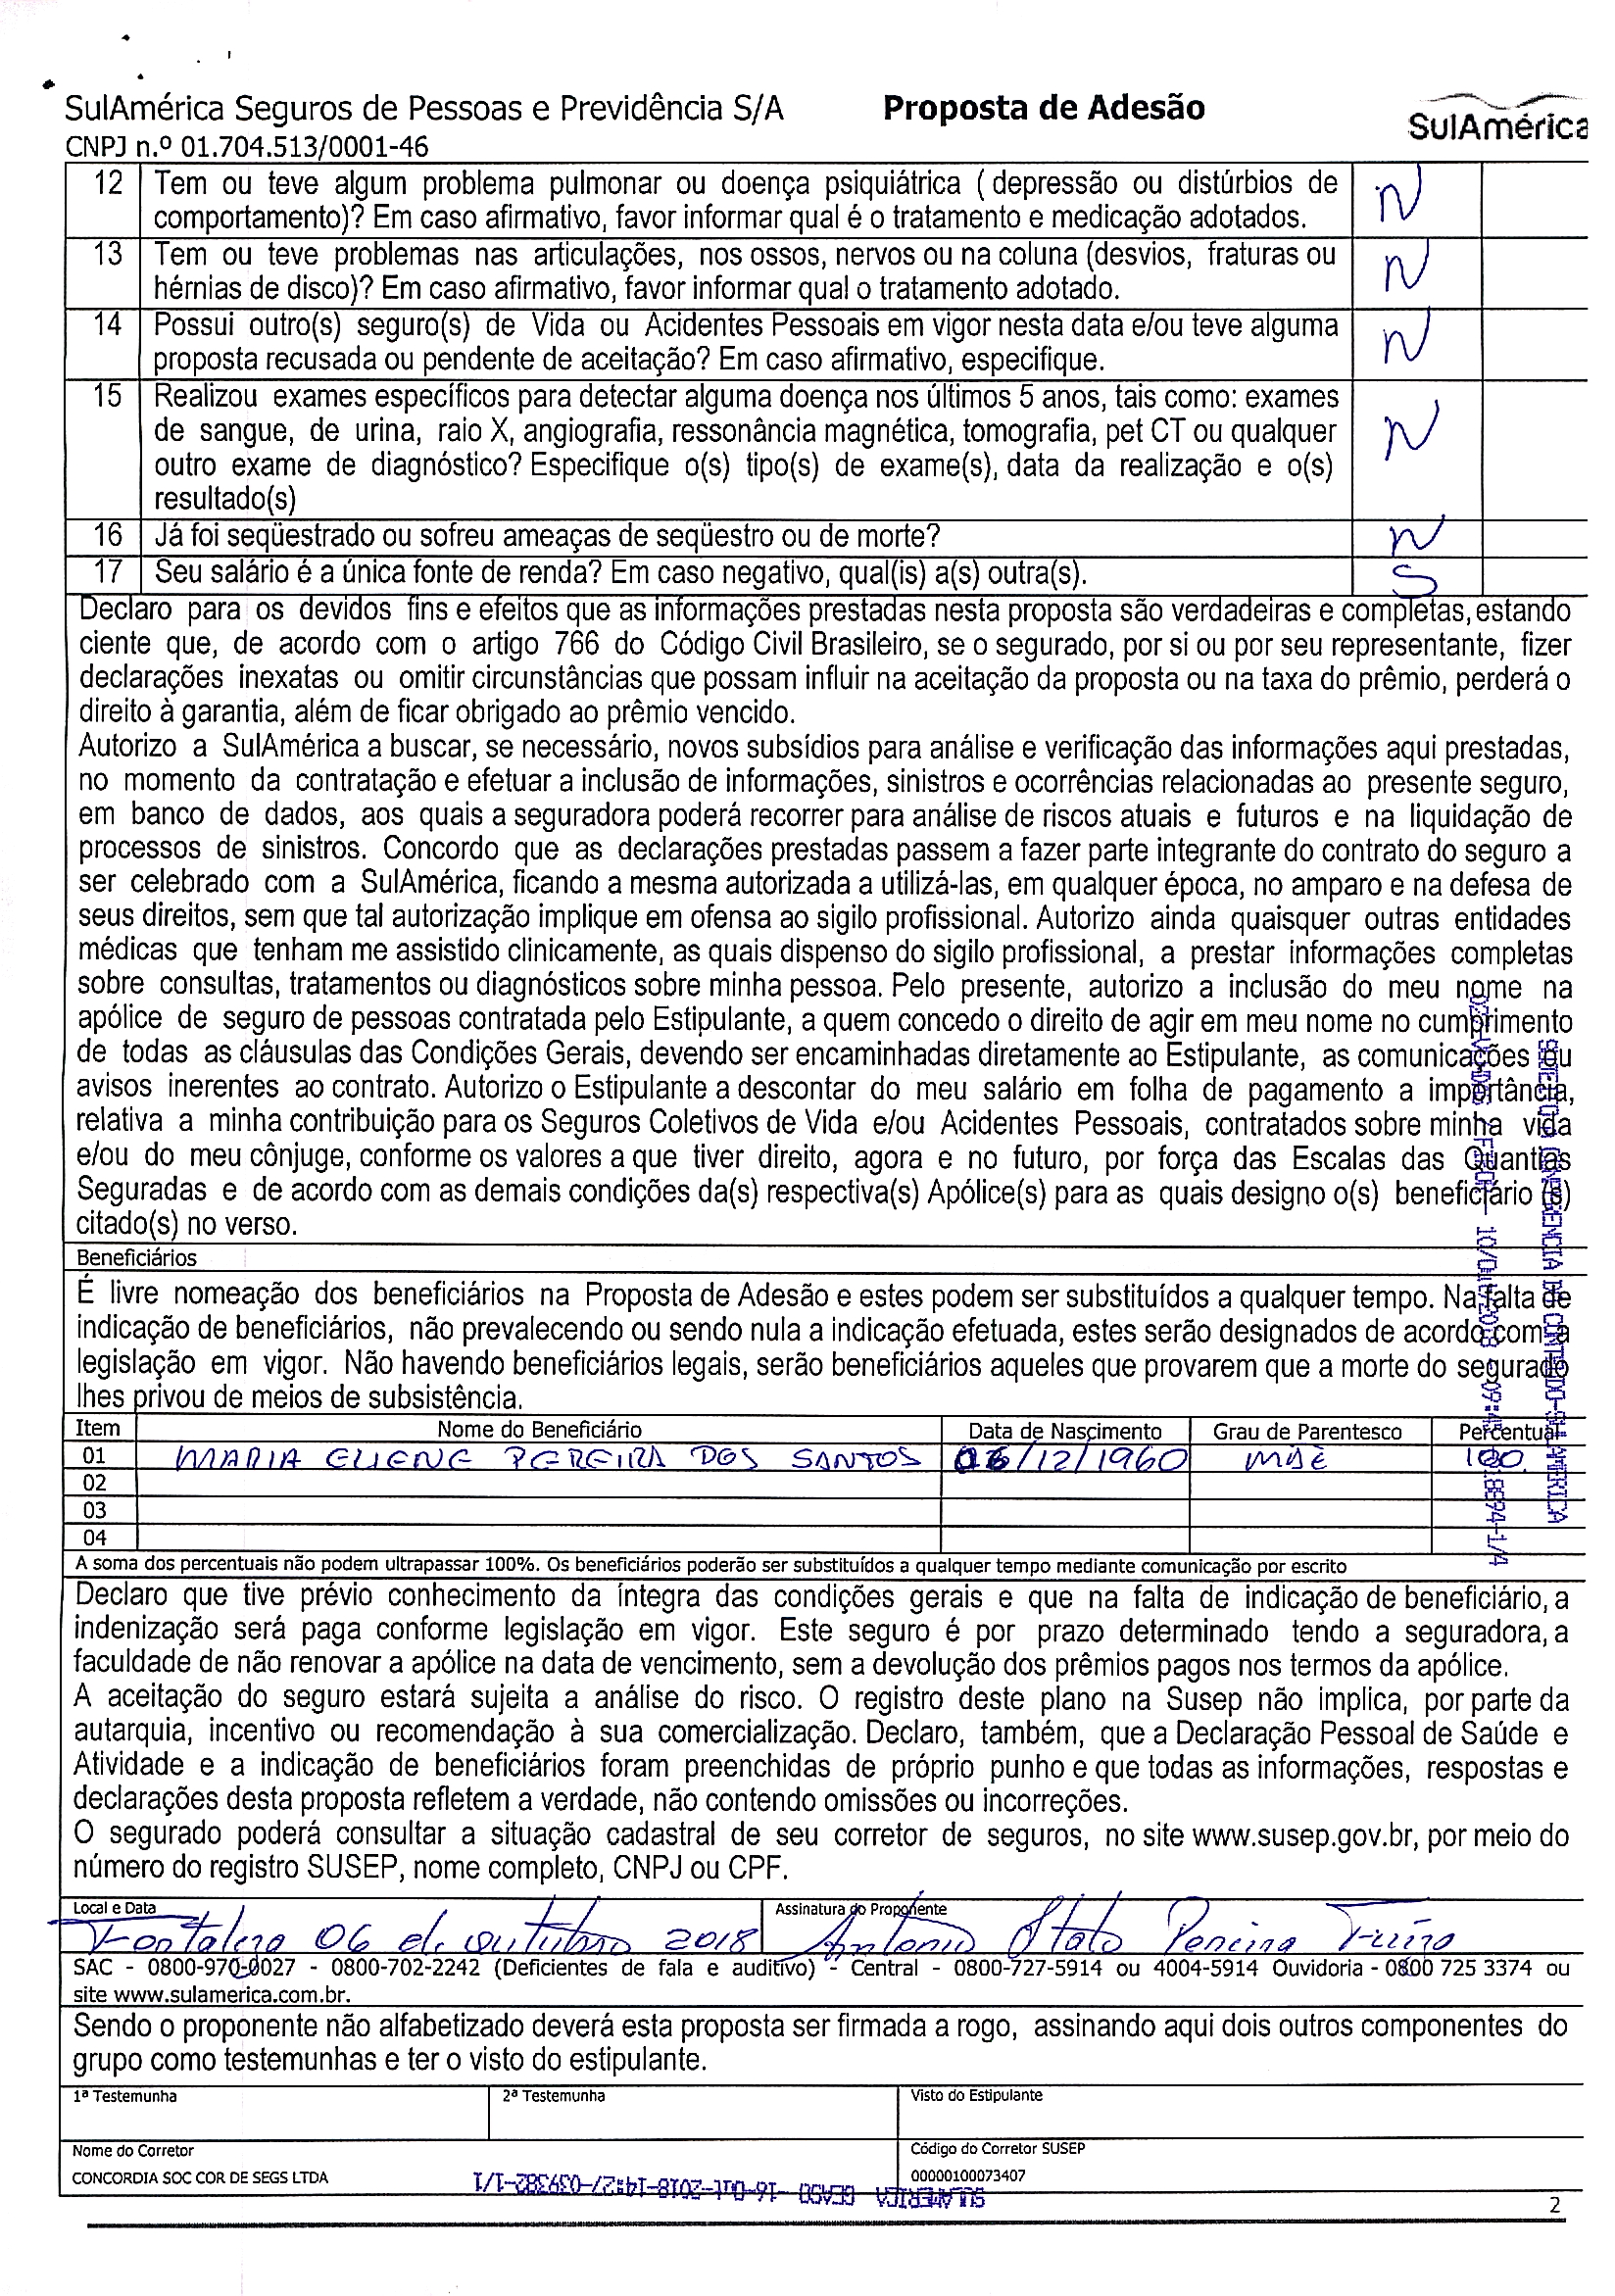 SulAmérica Seguros de Pessoas e Previdência S/A Proposta de Adesão SulAmérica
CNPJ n.º 01.704.513/0001-46
12 Tem ou teve algum problema pulmonar ou doença psiquiátrica ( depressão ou distúrbios de N
comportamento)? Em caso afirmativo, favor informar qual é o tratamento e medicação adotados.
13 Tem ou teve problemas nas articulações, nos ossos, nervos ou na coluna (desvios, fraturas ou N
hérnias de disco)? Em caso afirmativo, favor informar qual o tratamento adotado.
14 Possui outro(s) seguro(s) de Vida ou Acidentes Pessoais em vigor nesta data e/ou teve alguma N
proposta recusada ou pendente de aceitação? Em caso afirmativo, especifique.
15 Realizou exames específicos para detectar alguma doença nos últimos 5 anos, tais como: exames N
de sangue, de urina, raio X, angiografia, ressonância magnética, tomografia, pet CT ou qualquer
outro exame de diagnóstico? Especifique o(s) tipo(s) de exame(s), data da realização e o(s)
resultado(s)
16 Já foi seqüestrado ou sofreu ameaças de seqüestro ou de morte? N
17 Seu salário é a única fonte de renda? Em caso negativo, qual(is) a(s) outra(s). S
Declaro para os devidos fins e efeitos que as informações prestadas nesta proposta são verdadeiras e completas, estando
ciente que, de acordo com o artigo 766 do Código Civil Brasileiro, se o segurado, por si ou por seu representante, fizer
declarações inexatas ou omitir circunstâncias que possam influir na aceitação da proposta ou na taxa do prêmio, perderá o
direito à garantia, além de ficar obrigado ao prêmio vencido.
Autorizo a SulAmérica a buscar, se necessário, novos subsídios para análise e verificação das informações aqui prestadas,
no momento da contratação e efetuar a inclusão de informações, sinistros e ocorrências relacionadas ao presente seguro,
em banco de dados, aos quais a seguradora poderá recorrer para análise de riscos atuais e futuros e na liquidação de
processos de sinistros. Concordo que as declarações prestadas passem a fazer parte integrante do contrato do seguro a
ser celebrado com a SulAmérica, ficando a mesma autorizada a utilizá-las, em qualquer época, no amparo e na defesa de
seus direitos, sem que tal autorização implique em ofensa ao sigilo profissional. Autorizo ainda quaisquer outras entidades
médicas que tenham me assistido clinicamente, as quais dispenso do sigilo profissional, a prestar informações completas
sobre consultas, tratamentos ou diagnósticos sobre minha pessoa. Pelo presente, autorizo a inclusão do meu nome na
apólice de seguro de pessoas contratada pelo Estipulante, a quem concedo o direito de agir em meu nome no cumprimento
de todas as cláusulas das Condições Gerais, devendo ser encaminhadas diretamente ao Estipulante, as comunicações ou
avisos inerentes ao contrato. Autorizo o Estipulante a descontar do meu salário em folha de pagamento a importância,
relativa a minha contribuição para os Seguros Coletivos de Vida e/ou Acidentes Pessoais, contratados sobre minha vida
e/ou do meu cônjuge, conforme os valores a que tiver direito, agora e no futuro, por força das Escalas das Quantias
Seguradas e de acordo com as demais condições da(s) respectiva(s) Apólice(s) para as quais designo o(s) beneficiário (s)
citado(s) no verso.
Beneficiários
É livre nomeação dos beneficiários na Proposta de Adesão e estes podem ser substituídos a qualquer tempo. Na falta de
indicação de beneficiários, não prevalecendo ou sendo nula a indicação efetuada, estes serão designados de acordo com a
legislação em vigor. Não havendo beneficiários legais, serão beneficiários aqueles que provarem que a morte do segurado
lhes privou de meios de subsistência.
Item Nome do Beneficiário Data de Nascimento Grau de Parentesco Percentual
01 MARIA ELIENE PEREIRA DOS SANTOS 06/12/1960 MÃE 100
02
03
04
A soma dos percentuais não podem ultrapassar 100%. Os beneficiários poderão ser substituídos a qualquer tempo mediante comunicação por escrito
Declaro que tive prévio conhecimento da íntegra das condições gerais e que na falta de indicação de beneficiário, a
indenização será paga conforme legislação em vigor. Este seguro é por prazo determinado tendo a seguradora, a
faculdade de não renovar a apólice na data de vencimento, sem a devolução dos prêmios pagos nos termos da apólice.
A aceitação do seguro estará sujeita a análise do risco. O registro deste plano na Susep não implica, por parte da
autarquia, incentivo ou recomendação à sua comercialização. Declaro, também, que a Declaração Pessoal de Saúde e
Atividade e a indicação de beneficiários foram preenchidas de próprio punho e que todas as informações, respostas e
declarações desta proposta refletem a verdade, não contendo omissões ou incorreções.
O segurado poderá consultar a situação cadastral de seu corretor de seguros, no site www.susep.gov.br, por meio do
número do registro SUSEP, nome completo, CNPJ ou CPF.
Local e Data Assinatura do Proponente
Fortaleza 06 de outubro 2018 Antonio Pereira
SAC - 0800-970-0027 - 0800-702-2242 (Deficientes de fala e auditivo) - Central - 0800-727-5914 ou 4004-5914 Ouvidoria - 0800 725 3374 ou
site www.sulamerica.com.br.
Sendo o proponente não alfabetizado deverá esta proposta ser firmada a rogo, assinando aqui dois outros componentes do
grupo como testemunhas e ter o visto do estipulante.
1ª Testemunha 2ª Testemunha Visto do Estipulante
Nome do Corretor Código do Corretor SUSEP
CONCORDIA SOC COR DE SEGS LTDA 00000100073407
SULAMERICA GCASO -16-Out-2018-14:27-039382-1/1
2